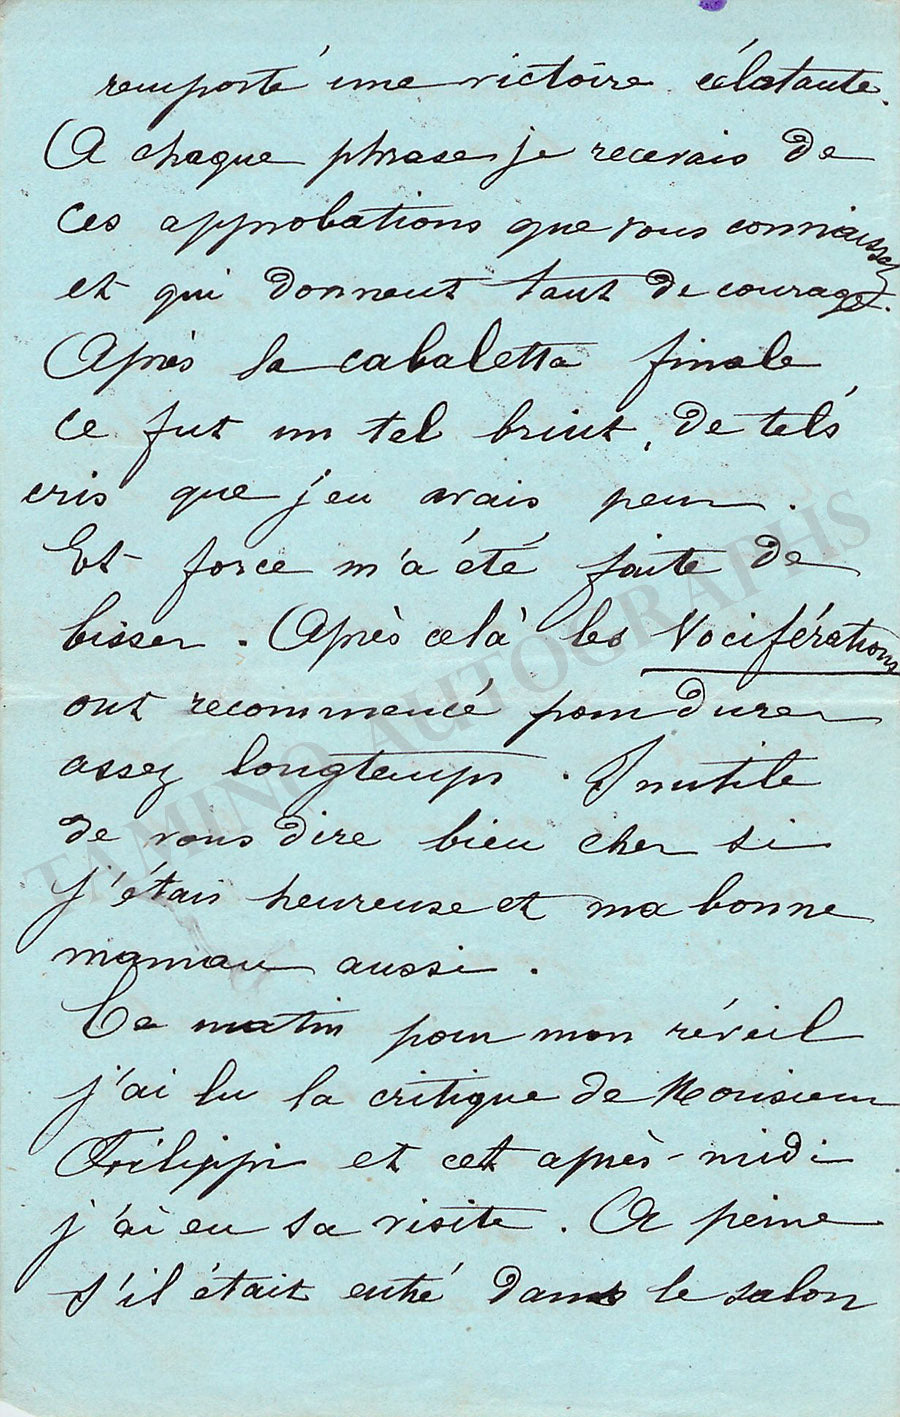 remporté une victoire éclatante.
A chaque phrase je recevais de
ces approbations que vous connaissez
et qui donnent tant de courage.
Après la cabaletta finale
ce fut un tel bruit, de tels
cris que j'eu avais peur.
Et force m'a été faite de
bisser. Après celà les Vociférations
ont recommencé pour durer
assez longtemps. Inutile
de vous dire bien cher si
j'étais heureuse et ma bonne
maman aussi.
Ce matin pour mon réveil
j'ai lu la critique de Monsieur
Filippi et cet après-midi
j'ai eu sa visite. A peine
s'il était entré dans le salon
TAMINO AUTOGRAPHS